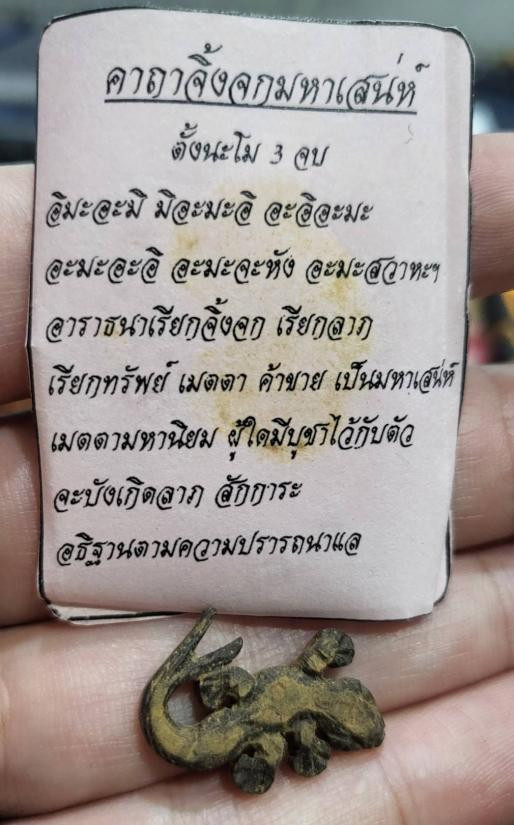 คาถาจิ้งจกมหาเสน่ห์
ตั้งนะโม 3 จบ
อิมะอะมิ มิอะมะอิ อะอิอะมะ
อะมะอะอิ อะมะจะหัง อะมะสวาหะฯ
อาราธนาเรียกจิ้งจก เรียกลาภ
เรียกทรัพย์ เมตตา ค้าขาย เป็นมหาเสน่ห์
เมตตามหานิยม ผู้ใดมีบูชาไว้กับตัว
จะบังเกิดลาภ สักการะ
อธิฐานตามความปรารถนาแล